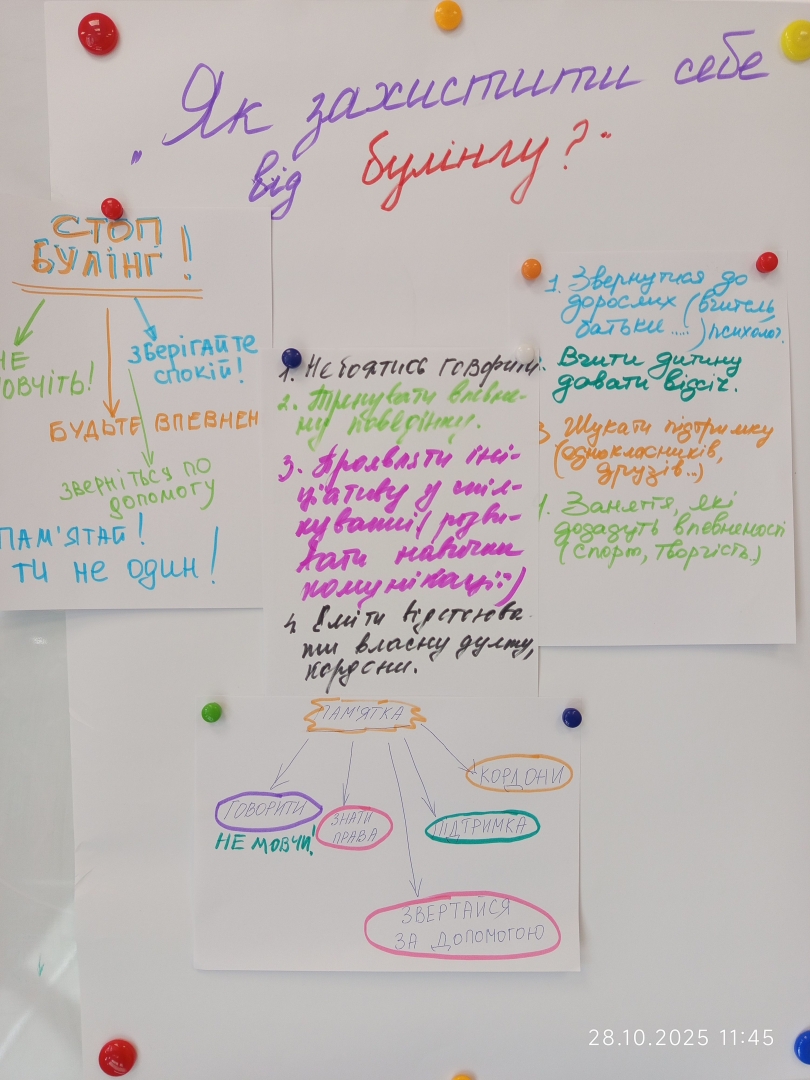 „Як захистити себе
від булінгу?"
СТОП
БУЛІНГ!
НЕ
МОВЧІТЬ!
ЗБЕРІГАЙТЕ
СПОКІЙ!
БУДЬТЕ ВПЕВНЕН
ЗВЕРНІТЬСЯ ПО
ДОПОМОГУ
ПАМ'ЯТАЙ!
ТИ НЕ ОДИН!
1. Не боятись говорити
2. Тренувати впевне-
ну поведінку.
3. Проявляти іні-
ціативу у спіл-
куванні (розви-
вати навички
комунікації)
4. Вміти відстоюва
ти власну думку,
кордони.
1. Звернутися до
дорослих (вчитель
батьки.....) психолог.
Вчити дитину
давати відсіч.
3 Шукати підтримку
(однокласників,
друзів..)
4. Заняття, які
додадуть впевненості
(спорт, творчість.)
ПАМ'ЯТКА
КОРДОНИ
ГОВОРИТИ
НЕ МОВЧИ!
ЗНАТИ
ПРАВА
ПІДТРИМКА
ЗВЕРТАЙСЯ
ЗА ДОПОМОГОЮ
28.10.2025 11:45